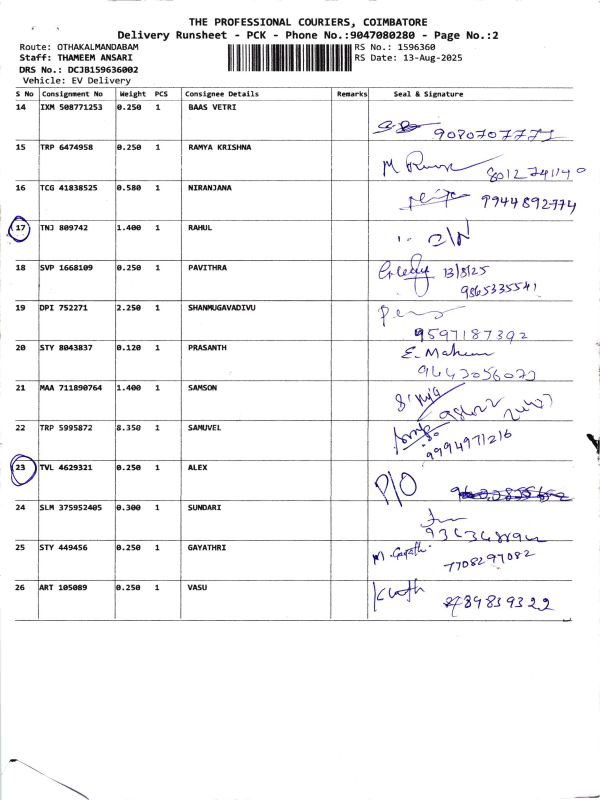 THE PROFESSIONAL COURIERS, COIMBATORE
Delivery Runsheet - PCK - Phone No.:9047080280 - Page No.:2
Route: OTHAKALMANDABAM RS No.: 1596360
Staff: THAMEEM ANSARI RS Date: 13-Aug-2025
DRS No.: DCJB159636002
Vehicle: EV Delivery
S No Consignment No Weight PCS Consignee Details Remarks Seal & Signature
14 IXM 508771253 0.250 1 BAAS VETRI
15 TRP 6474958 0.250 1 RAMYA KRISHNA
16 TCG 41838525 0.580 1 NIRANJANA
9944892774
17 TNJ 809742 1.400 1 RAHUL
18 SVP 1668109 0.250 1 PAVITHRA
13/8/25
9865335541
19 DPI 752271 2.250 1 SHANMUGAVADIVU
9597187392
20 STY 8043837 0.120 1 PRASANTH
21 MAA 711890764 1.400 1 SAMSON
22 TRP 5995872 8.350 1 SAMUVEL
9994971216
23 TVL 4629321 0.250 1 ALEX
P/O
24 SLM 375952405 0.300 1 SUNDARI
25 STY 449456 0.250 1 GAYATHRI
M. Gayath.
7708297082
26 ART 105089 0.250 1 VASU